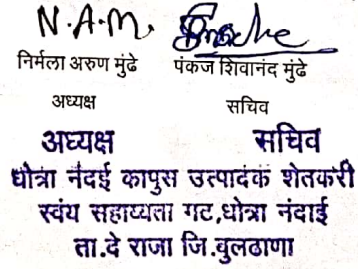 N.A.M.
निर्मला अरुण मुंढे पंकज शिवानंद मुंढे
अध्यक्ष सचिव
अध्यक्ष सचिव
धोत्रा नंदई कापुस उत्पादक शेतकरी
स्वंय सहाय्यता गट,धोत्रा नंदाई
ता.दे राजा जि.बुलढाणा